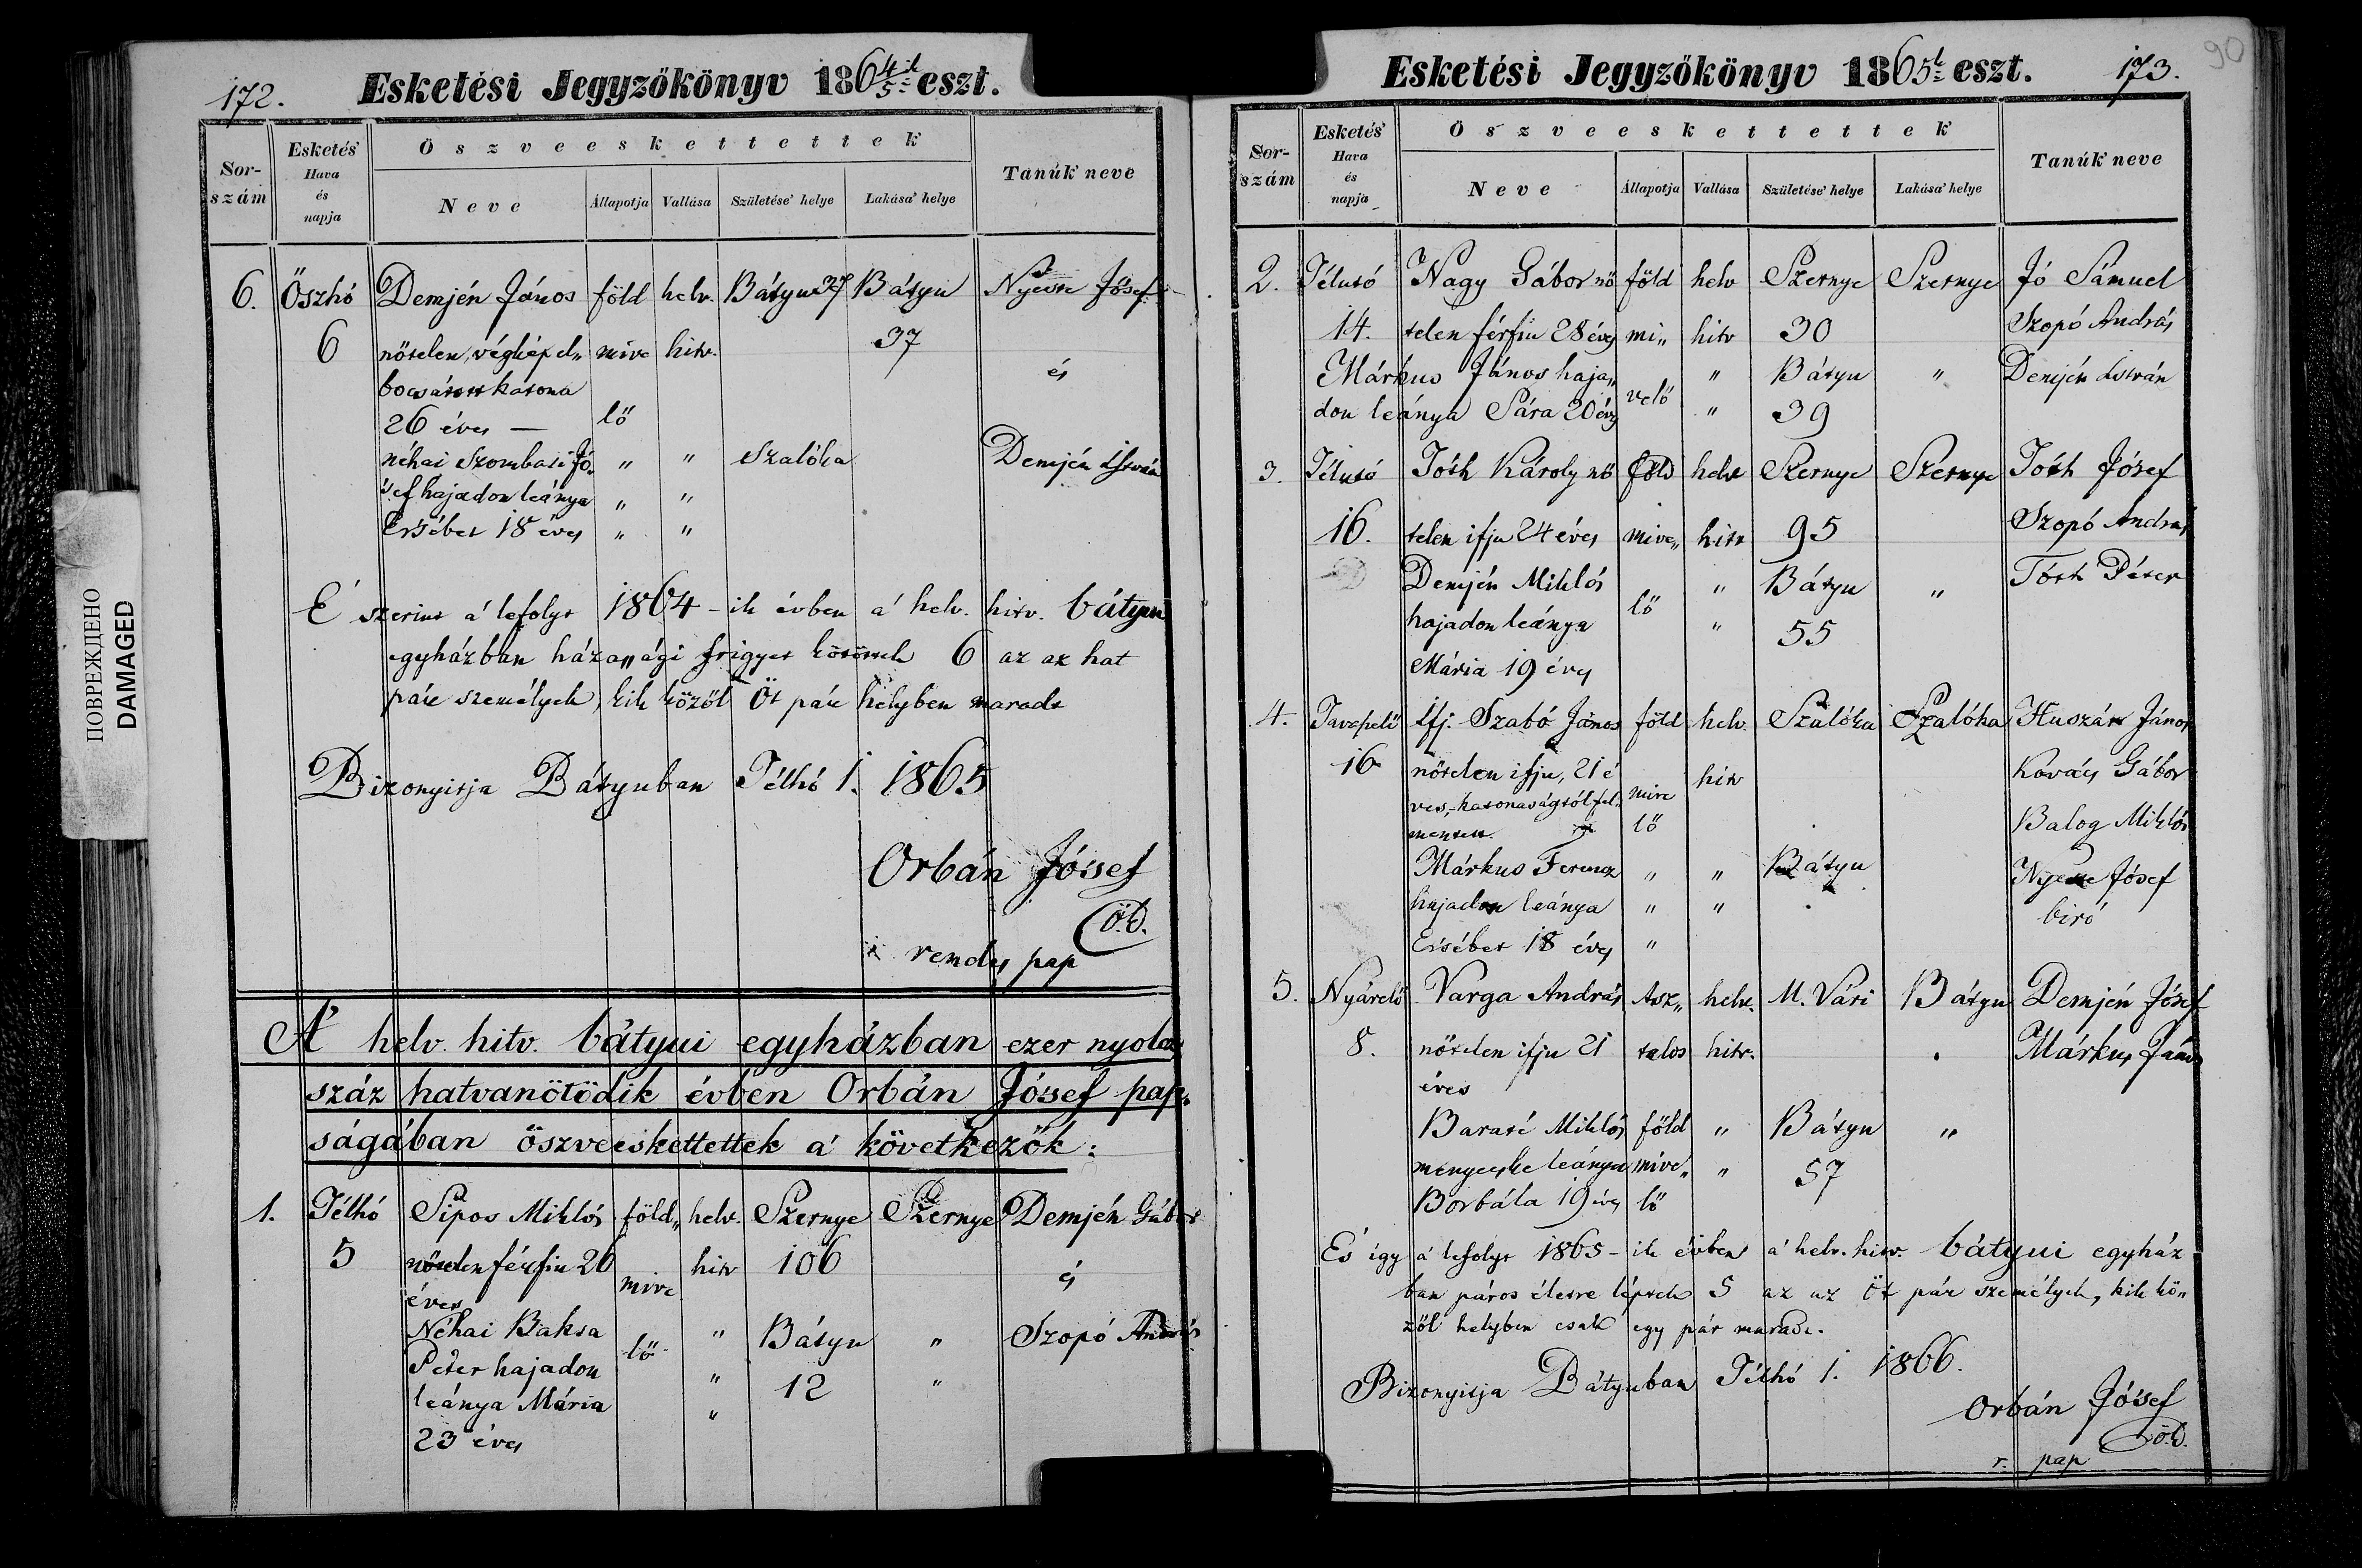 172. Esketési Jegyzőkönyv 1864/5ik eszt.
Sor-szám
Esketés' Hava és napja
Öszveeskettettek
Neve
Állapotja
Vallása
Születése' helye
Lakása' helye
Tanúk' neve
6. Őszhó Demjén János föld helv. Bátyu 37 Bátyu József
6 nőtelen, végkép el„ mive hitv. 37
bocsátott katona és
26 éves — lő
néhai Szombati Jó„ „ „ Szalóka Demjén István
'sef hajadon leánya „ „
Ersébet 18 éves „ „
E' szerint a' lefolyt 1864-ik évben a' helv. hitv. bátyui
egyházban házassági frigyet kötöttek 6 az az hat
pár személyek, kik közöl Öt pár helyben maradt
Bizonyitja Bátyuban Télhó 1. 1865
Orbán Jó'sef
ö.k.
rendes pap
A' helv. hitv. bátyui egyházban ezer nyolcz
száz hatvanötödik évben Orbán Jó'sef pap„
ságában öszveeskettettek a' következők:
1. Télhó Sipos Miklós föld„ helv. Szernye Szernye Demjén Gábor
5 nőtelen férfiu 26 mive hitv 106 és
éves
Néhai Baksa „ Bátyu „ Szopó András
Péter hajadon lő „ 12 „
leánya Mária „
23 éves
ПОВРЕЖДЕНО
DAMAGED
Esketési Jegyzőkönyv 1865k eszt. 173.
90
Sor-szám
Esketés' Hava és napja
Öszveeskettettek
Neve
Állapotja
Vallása
Születése' helye
Lakása' helye
Tanúk' neve
2. Télutó Nagy Gábor nő föld helv Szernye Szernye Jó Sámuel
14. telen férfiu 28 éves mi„ hitv 30 Szopó András
Márkus János haja„ „ Bátyu „ Demjén István
don leánya Sára 20 éves velő „ 39
3. Télutó Tóth Károly nő föld helv Szernye Szernye Tóth Jó'sef
16. telen ifju 24 éves mive„ hitv 95 Szopó András
Demjén Miklós „ Bátyu „ Tóth Péter
hajadon leánya lő „ 55
Mária 19 éves
4. Tavaszelő Ifj. Szabó János föld helv. Szalóka Szalóka Huszár János
16 nőtelen ifju, 21 é hitv Kovács Gábor
ves, katonaságtól fel„ mive
mentett. lő Balog Miklós
Márkus Ferencz „ „ Bátyu József
hajadon leánya „ „ biró
Ersébet 18 éves „
5. Nyárelő Varga András Asz„ helv. M. Vári Bátyu Demjén Jó'sef
8. nőtelen ifju 21 talos hitv. Márkus János
éves
Barati Miklós föld „ Bátyu „
menyecske leánya mive„ „ 57
Borbála 19 éves lő
És igy a' lefolyt 1865-ik évben a' helv. hitv. bátyui egyház
ban páros életre léptek 5 az az öt pár személyek, kik kö„
zöl helyben csak egy pár maradt.
Bizonyitja Bátyuban Télhó 1. 1866.
Orbán Jó'sef
ö.k.
r. pap